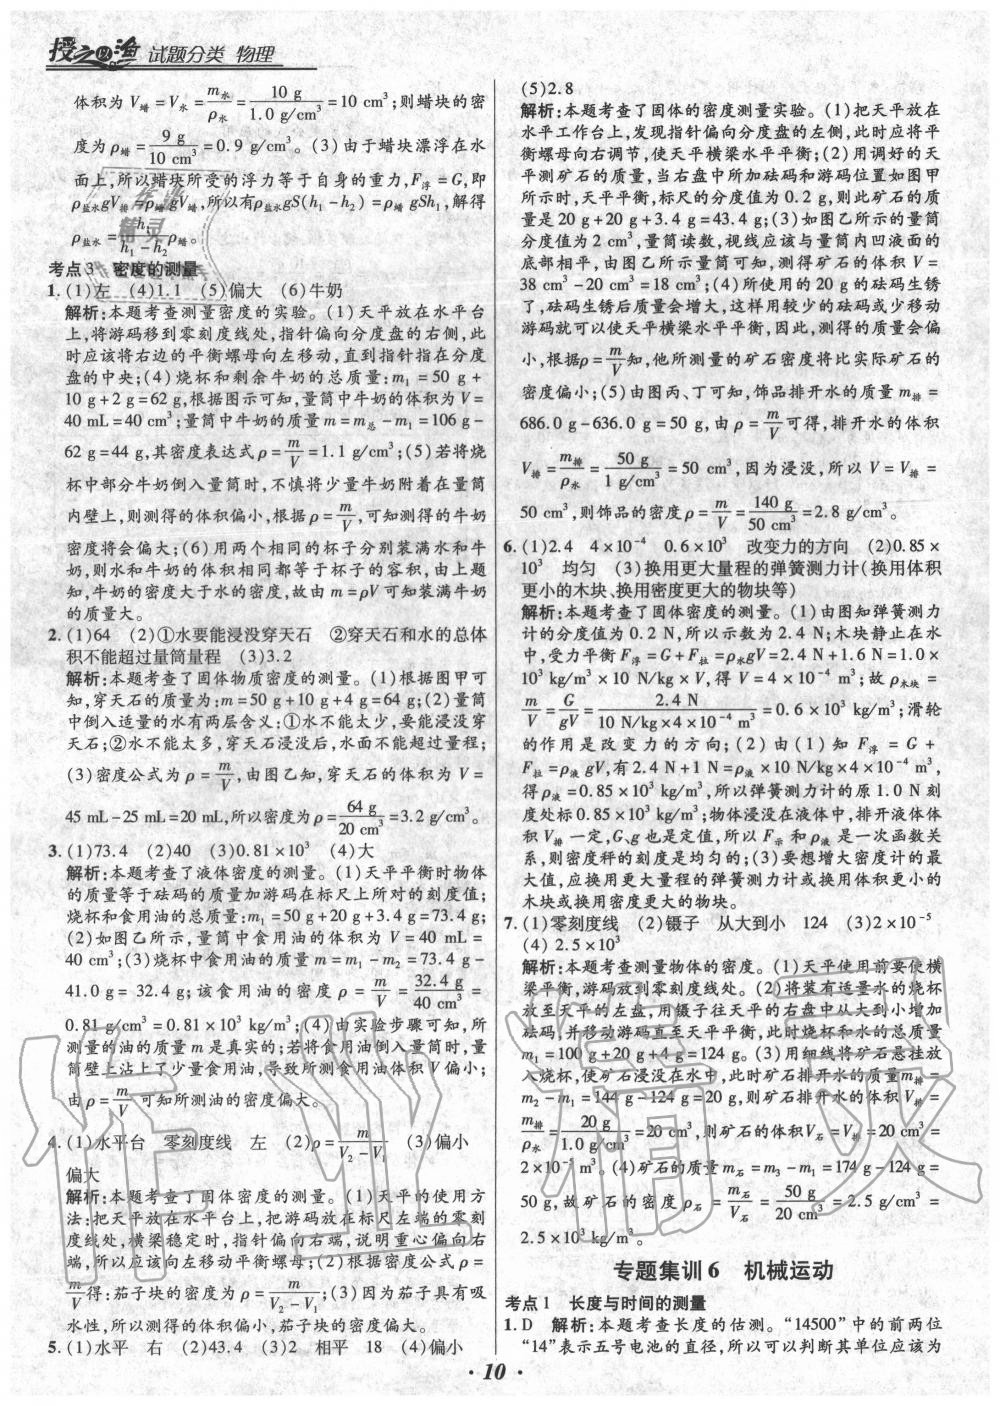 授之以渔 试题分类 物理
体积为V蜡=V水=m水/ρ水=10 g/1.0 g/cm³=10 cm³;则蜡块的密
度为ρ蜡=9 g/10 cm³=0.9 g/cm³。(3)由于蜡块漂浮在水
面上,所以蜡块所受的浮力等于自身的重力,F浮=G,即
ρ盐水gV排=ρ蜡gV蜡,所以有ρ盐水gS(h₁-h₂)=ρ蜡gSh₁,解得
ρ盐水=h₁/(h₁-h₂)ρ蜡。
考点3 密度的测量
1. (1)左 (4)1.1 (5)偏大 (6)牛奶
解析:本题考查测量密度的实验。(1)天平放在水平台
上,将游码移到零刻度线处,指针偏向分度盘的右侧,此
时应该将右边的平衡螺母向左移动,直到指针指在分度
盘的中央;(4)烧杯和剩余牛奶的总质量:m₁=50 g+
10 g+2 g=62 g,根据图示可知,量筒中牛奶的体积为V=
40 mL=40 cm³;量筒中牛奶的质量m=m总-m₁=106 g-
62 g=44 g,其密度表达式ρ=m/V=1.1 g/cm³;(5)若将烧
杯中部分牛奶倒入量筒时,不慎将少量牛奶附着在量筒
内壁上,则测得的体积偏小,根据ρ=m/V,可知测得的牛奶
密度将会偏大;(6)用两个相同的杯子分别装满水和牛
奶,则水和牛奶的体积相同都等于杯子的容积,由上题
知,牛奶的密度大于水的密度,故由m=ρV可知装满牛奶
的质量大。
2. (1)64 (2)①水要能浸没穿天石 ②穿天石和水的总体
积不能超过量筒量程 (3)3.2
解析:本题考查了固体物质密度的测量。(1)根据图甲可
知,穿天石的质量为:m=50 g+10 g+4 g=64 g;(2)量筒
中倒入适量的水有两层含义:①水不能太少,要能浸没穿
天石;②水不能太多,穿天石浸没后,水面不能超过量程;
(3)密度公式为ρ=m/V,由图乙知,穿天石的体积为V=
45 mL-25 mL=20 mL,所以密度为ρ=64 g/20 cm³=3.2 g/cm³。
3. (1)73.4 (2)40 (3)0.81×10³ (4)大
解析:本题考查了液体密度的测量。(1)天平平衡时物体
的质量等于砝码的质量加游码在标尺上所对的刻度值;
烧杯和食用油的总质量:m₁=50 g+20 g+3.4 g=73.4 g;
(2)如图乙所示,量筒中食用油的体积为V=40 mL=
40 cm³;(3)烧杯中食用油的质量m=m₁-m₂=73.4 g-
41.0 g=32.4 g;该食用油的密度ρ=m/V=32.4 g/40 cm³=
0.81 g/cm³=0.81×10³ kg/m³;(4)由实验步骤可知,所
测量的油的质量m是真实的;若将食用油倒入量筒时,量
筒壁上沾上了少量食用油,导致所测食用油体积V偏小;
由ρ=m/V可知所测油的密度偏大。
4. (1)水平台 零刻度线 左 (2)ρ=m/(V₂-V₁) (3)偏小
偏大
解析:本题考查了固体密度的测量。(1)天平的使用方
法:把天平放在水平台上,把游码放在标尺左端的零刻
度线处,横梁稳定时,指针偏向右端,说明重心偏向右
端,所以应该向左移动平衡螺母;(2)根据密度公式ρ=
m/V得:茄子块的密度为ρ=m/(V₂-V₁);(3)因为茄子具有吸
水性,所以测得的体积偏小,茄子块的密度偏大。
5. (1)水平 右 (2)43.4 (3)2 相平 18 (4)偏小
(5)2.8
解析:本题考查了固体的密度测量实验。(1)把天平放在
水平工作台上,发现指针偏向分度盘的左侧,此时应将平
衡螺母向右调节,使天平横梁水平平衡;(2)用调好的天
平测矿石的质量,当右盘中所加砝码和游码位置如图甲
所示时,天平平衡,标尺的分度值为0.2 g,则此矿石的质
量是20 g+20 g+3.4 g=43.4 g;(3)如图乙所示的量筒
分度值为2 cm³,量筒读数,视线应该与量筒内凹液面的
底部相平,由图乙所示量筒可知,测得矿石的体积V=
38 cm³-20 cm³=18 cm³;(4)所使用的20 g的砝码生锈
了,砝码生锈后质量会增大,这样用较少的砝码或少移动
游码就可以使天平横梁水平平衡,因此,测得的质量会偏
小,根据ρ=m/V知,他所测量的矿石密度将比实际矿石的
密度偏小;(5)由图丙、丁可知,饰品排开水的质量m排=
686.0 g-636.0 g=50 g,由ρ=m/V可得,排开水的体积
V排=m排/ρ水=50 g/1 g/cm³=50 cm³,因为浸没,所以V=V排=
50 cm³,则饰品的密度ρ=m/V=140 g/50 cm³=2.8 g/cm³。
6. (1)2.4 4×10⁻⁴ 0.6×10³ 改变力的方向 (2)0.85×
10³ 均匀 (3)换用更大量程的弹簧测力计(换用体积
更小的木块、换用密度更大的物块等)
解析:本题考查了固体密度的测量。(1)由图知弹簧测力
计的分度值为0.2 N,所以示数为2.4 N;木块静止在水
中,受力平衡F浮=G+F拉=ρ水gV=2.4 N+1.6 N=1.0×
10³ kg/m³×10 N/kg×V,得V=4×10⁻⁴ m³;故ρ木块=
m/V=G/gV=2.4 N/10 N/kg×4×10⁻⁴ m³=0.6×10³ kg/m³;滑轮
的作用是改变力的方向;(2)由(1)知F浮=G+
F拉=ρ液gV,有2.4 N+1 N=ρ液×10 N/kg×4×10⁻⁴ m³,
得ρ液=0.85×10³ kg/m³,所以弹簧测力计的原1.0 N刻
度处标0.85×10³ kg/m³;物体浸没在液体中,排开液体体
积V排一定,G、g也是定值,所以F示和ρ液是一次函数关
系,则密度秤的刻度是均匀的;(3)要想增大密度计的最
大值,应换用更大量程的弹簧测力计或换用体积更小的
木块或换用密度更大的物块。
7. (1)零刻度线 (2)镊子 从大到小 124 (3)2×10⁻⁵
(4) 2.5×10³
解析:本题考查测量物体的密度。(1)天平使用前要使横
梁平衡,游码放到零刻度线处。(2)将装有适量水的烧杯
放至天平的左盘,用镊子往天平的右盘中从大到小增加
砝码,并移动游码直至天平平衡,此时烧杯和水的总质量
m₁=100 g+20 g+4 g=124 g。(3)用细线将矿石悬挂放
入烧杯,使矿石浸没在水中,此时矿石排开水的质量m排=
m₂-m₁=144 g-124 g=20 g,则矿石排开水的体积V排=
m排/ρ水=20 g/1.0 g/cm³=20 cm³,则矿石的体积V石=V排=20 cm³=
2×10⁻⁵ m³。(4)矿石的质量m石=m₃-m₁=174 g-124 g=
50 g,故矿石的密度ρ石=m石/V石=50 g/20 cm³=2.5 g/cm³=
2.5×10³ kg/m³。
专题集训6 机械运动
考点1 长度与时间的测量
1. D 解析:本题考查长度的估测。“14500”中的前两位
“14”表示五号电池的直径,所以可以判断其单位应该为
· 10 ·
作业精灵